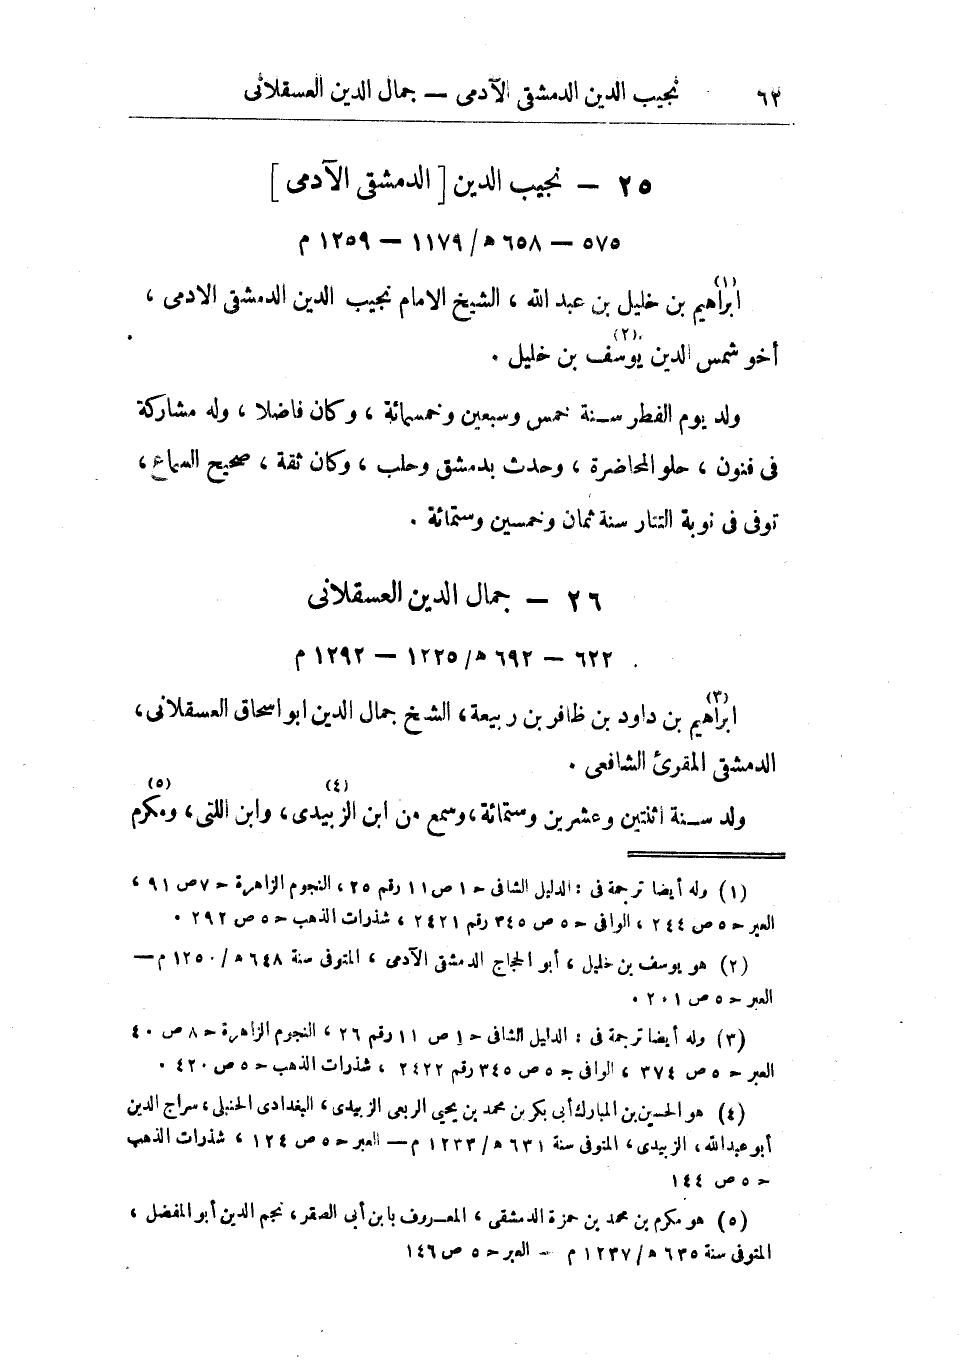 ٦٢ نجيب الدين الدمشقى الآدمى — جمال الدين العسقلانى
٢٥ — نجيب الدين [ الدمشقى الآدمى ]
٥٧٥ — ٦٥٨ ھ / ١١٧٩ — ١٢٥٩ م
ابراهيم(١) بن خليل بن عبد الله ، الشيخ الامام نجيب الدين الدمشقى الادمى ،
أخو شمس الدين يوسف(٢) بن خليل .
ولد يوم الفطر سـنة خمس وسبعين وخمسمائة ، وكان فاضلا ، وله مشاركة
فى فنون ، حلو المحاضرة ، وحدث بدمشق وحلب ، وكان ثقة ، صحيح السماع ،
توفى فى نوبة التتار سنة ثمان وخمسين وستمائة .
٢٦ — جمال الدين العسقلانى
٦٢٢ — ٦٩٢ ھ / ١٢٢٥ — ١٢٩٢ م
ابراهيم(٣) بن داود بن ظافر بن ربيعة ، الشيخ جمال الدين ابو اسحاق العسقلانى ،
الدمشقى المقرئ الشافعى .
ولد سـنة اثنتين وعشرين وستمائة ، وسمع من ابن الزبيدى(٤) ، وابن اللتى ، ومكرم(٥)
(١) وله أيضا ترجمة فى : الدليل الشافى حـ ١ ص ١١ رقم ٢٥ ، النجوم الزاهرة حـ ٧ ص ٩١ ،
العبر حـ ٥ ص ٢٤٤ ، الوافى حـ ٥ ص ٣٤٥ رقم ٢٤٢١ ، شذرات الذهب حـ ٥ ص ٢٩٢ .
(٢) هو يوسف بن خليل ، أبو الحجاج الدمشقى الآدمى ، المتوفى سنة ٦٤٨ ھ / ١٢٥٠ م —
العبر حـ ٥ ص ٢٠١ .
(٣) وله أيضا ترجمة فى : الدليل الشافى حـ ١ ص ١١ رقم ٢٦ ، النجوم الزاهرة حـ ٨ ص ٤٠
العبر حـ ٥ ص ٣٧٤ ، الوافى جـ ٥ ص ٣٤٥ رقم ٢٤٢٢ ، شذرات الذهب حـ ٥ ص ٤٢٠ .
(٤) هو الحسين بن المبارك أبى بكر بن محمد بن يحيى الربعى الزبيدى ، البغدادى الحنبلى ، سراج الدين
أبو عبد الله ، الزبيدى ، المتوفى سنة ٦٣١ ھ / ١٢٣٣ م — العبر حـ ٥ ص ١٢٤ ، شذرات الذهب
حـ ٥ ص ١٤٤
(٥) هو مكرم بن محمد بن حمزة الدمشقى ، المعـروف بابن أبى الصقر ، نجم الدين أبو المفضل ،
المتوفى سنة ٦٣٥ ھ / ١٢٣٧ م — العبر حـ ٥ ص ١٤٦